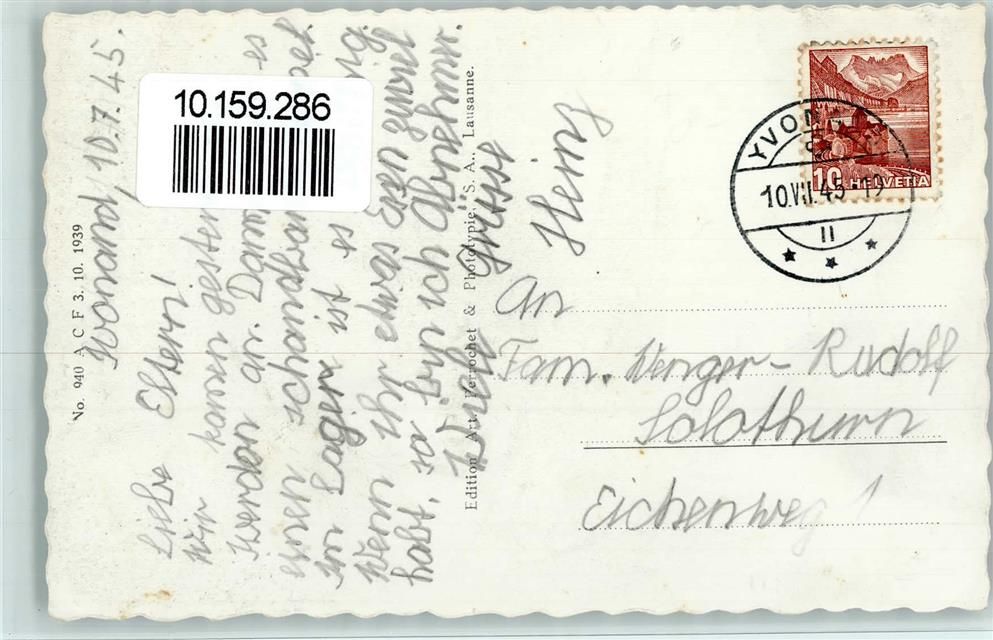 Yvonand, 10.7.45.
Liebe Eltern!
Wir kamen gestern
Iverdon an. Dann es
einen
im Lager ist es
Wenn Ihr etwas Essen zuviel
habt, so bin ich Abnehmer.
Viele Grüsse
Heinz
No. 940 A C F 3. 10. 1939
Edition Art. Perrochet & Phototypie, S. A., Lausanne.
10.159.286
YVON
10.VII.45-19
II
10 HELVETIA
An
Fam. Wenger-Rudolf
Solothurn
Eichenweg 1